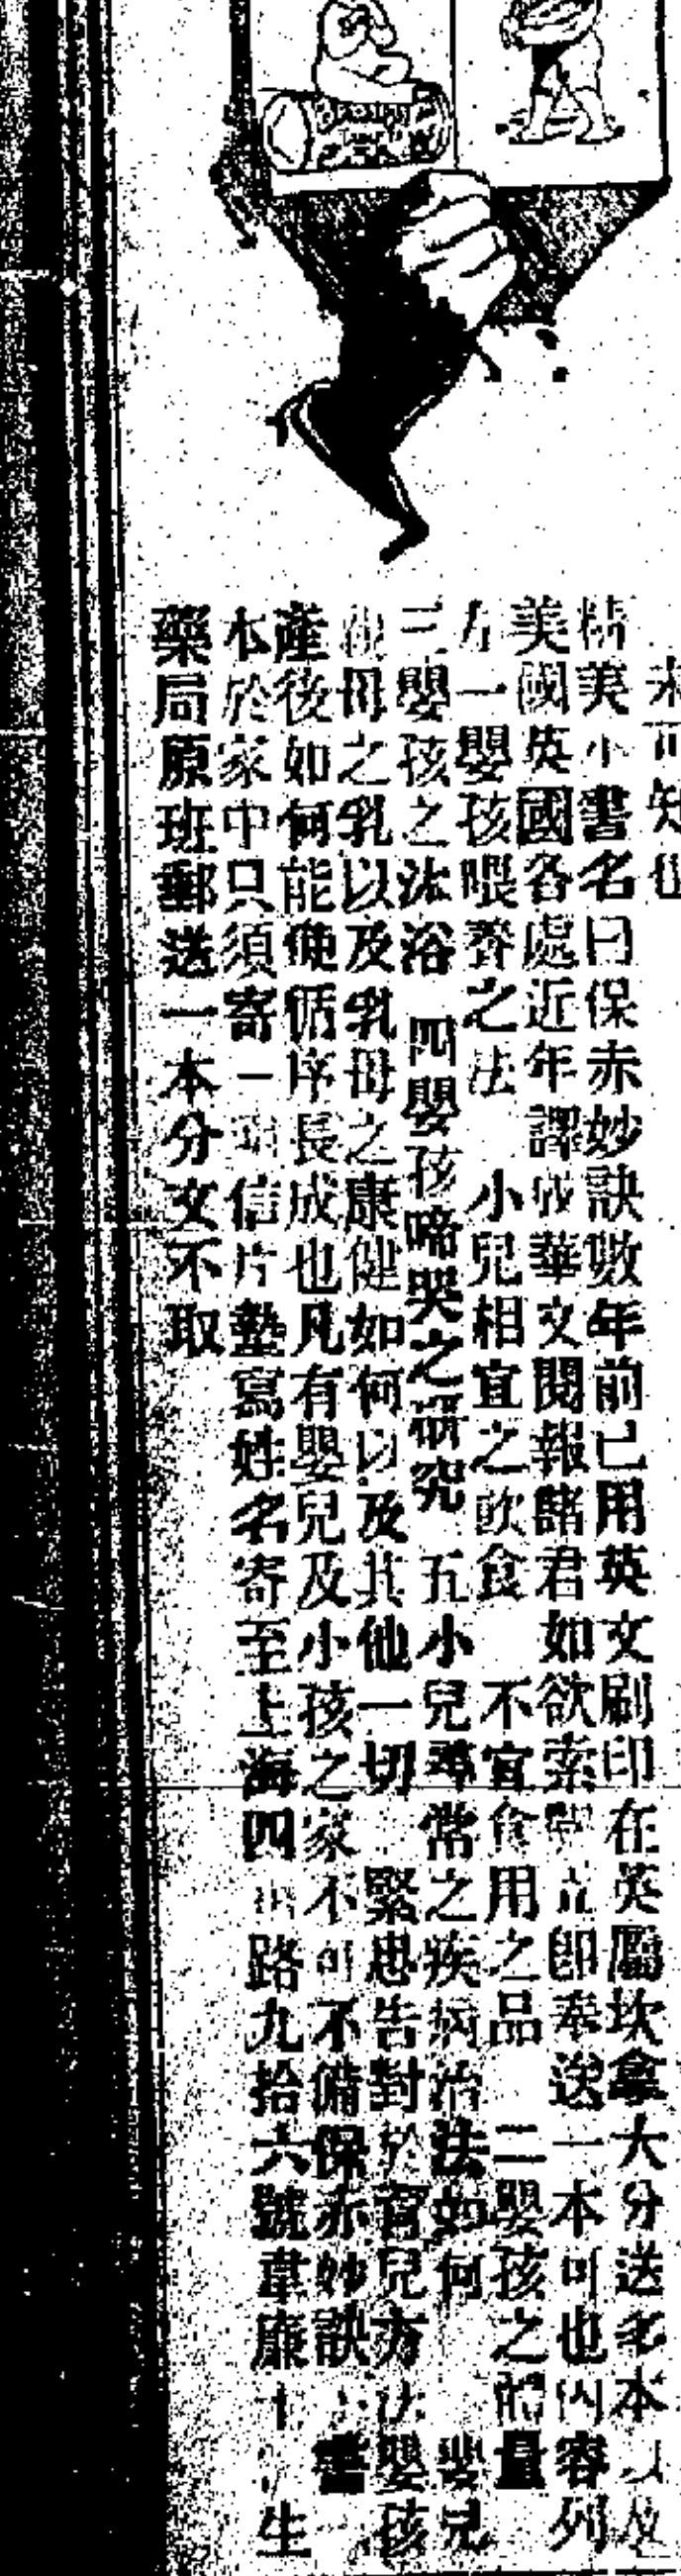 未可知也
精美小書名曰保赤妙訣數年前已用英文刷印在英屬坎拿大分送多本以及
美國英國各處近年譯成華文閱報諸君如欲索 立即奉送一本可也內容列
方一嬰孩喂養之法 小兒相宜之飲食 不宜食用之品 二嬰孩之體量
三嬰孩之沐浴 四嬰孩啼哭之研究 五小兒尋常之疾病治法如何 嬰兒
母之乳以及乳母之康健如何以及其他一切 緊忠告對於育兒方法嬰孩
產後如何能使循序長成也凡有嬰兒及小孩之家不可不備保赤妙訣 書
本於家中只須寄一 信片塾寫姓名寄至上海四川路九拾六號韋廉士 生
藥局原班郵送一本分文不取